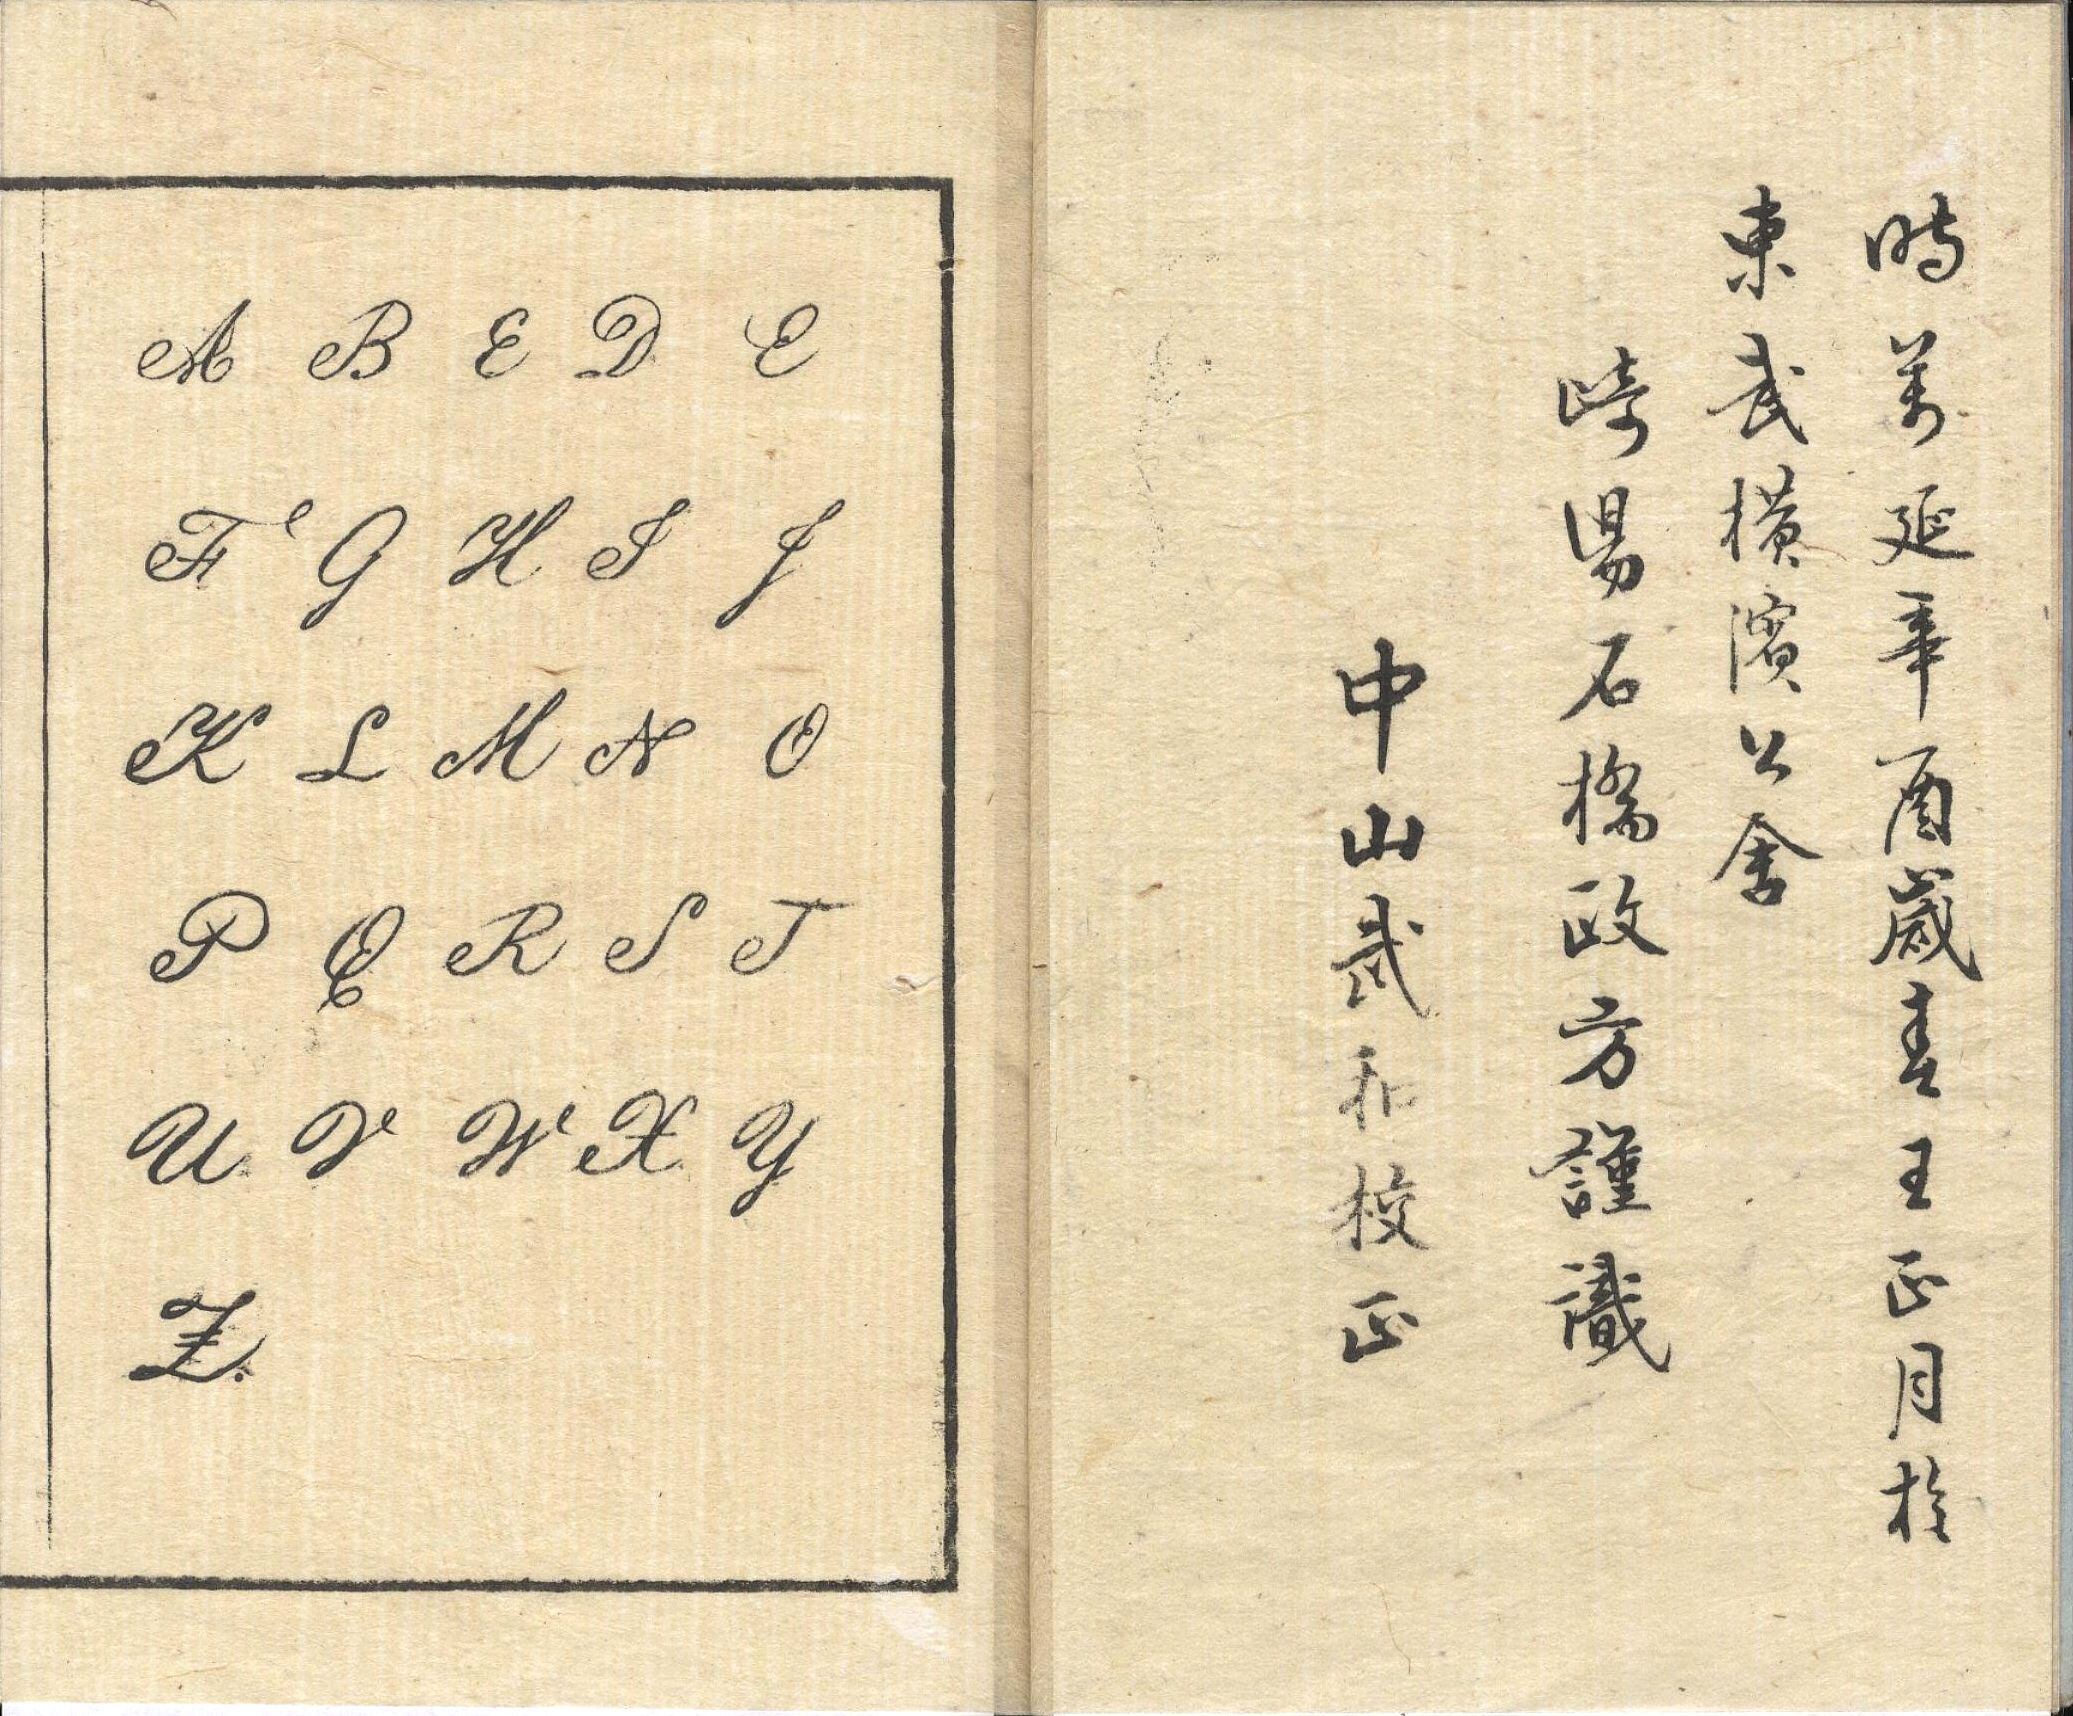 時萬延辛酉歳春王正月於
東武横濱公舎
崎陽石橋政方謹識
中山武和校正
A B E D E
F G H I J
K L M N O
P Q R S T
U V W X Y
Z.